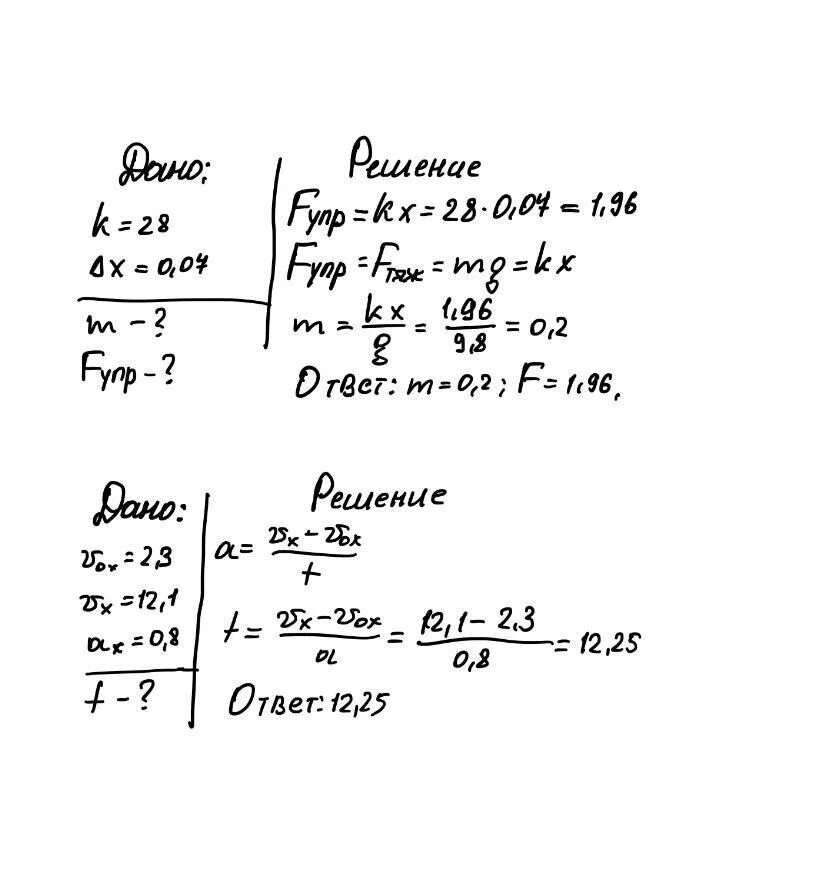 Дано:
k = 28
Δx = 0,07
m - ?
Fупр - ?
Решение
Fупр = kx = 28 · 0,07 = 1,96
Fупр = Fтяж = mg = kx
m = kx/g = 1,96/9,8 = 0,2
Ответ: m = 0,2 ; F = 1,96.
Дано:
v₀ₓ = 2,3
vₓ = 12,1
aₓ = 0,8
t - ?
Решение
a = (vₓ - v₀ₓ)/t
t = (vₓ - v₀ₓ)/a = (12,1 - 2.3)/0,8 = 12,25
Ответ: 12,25